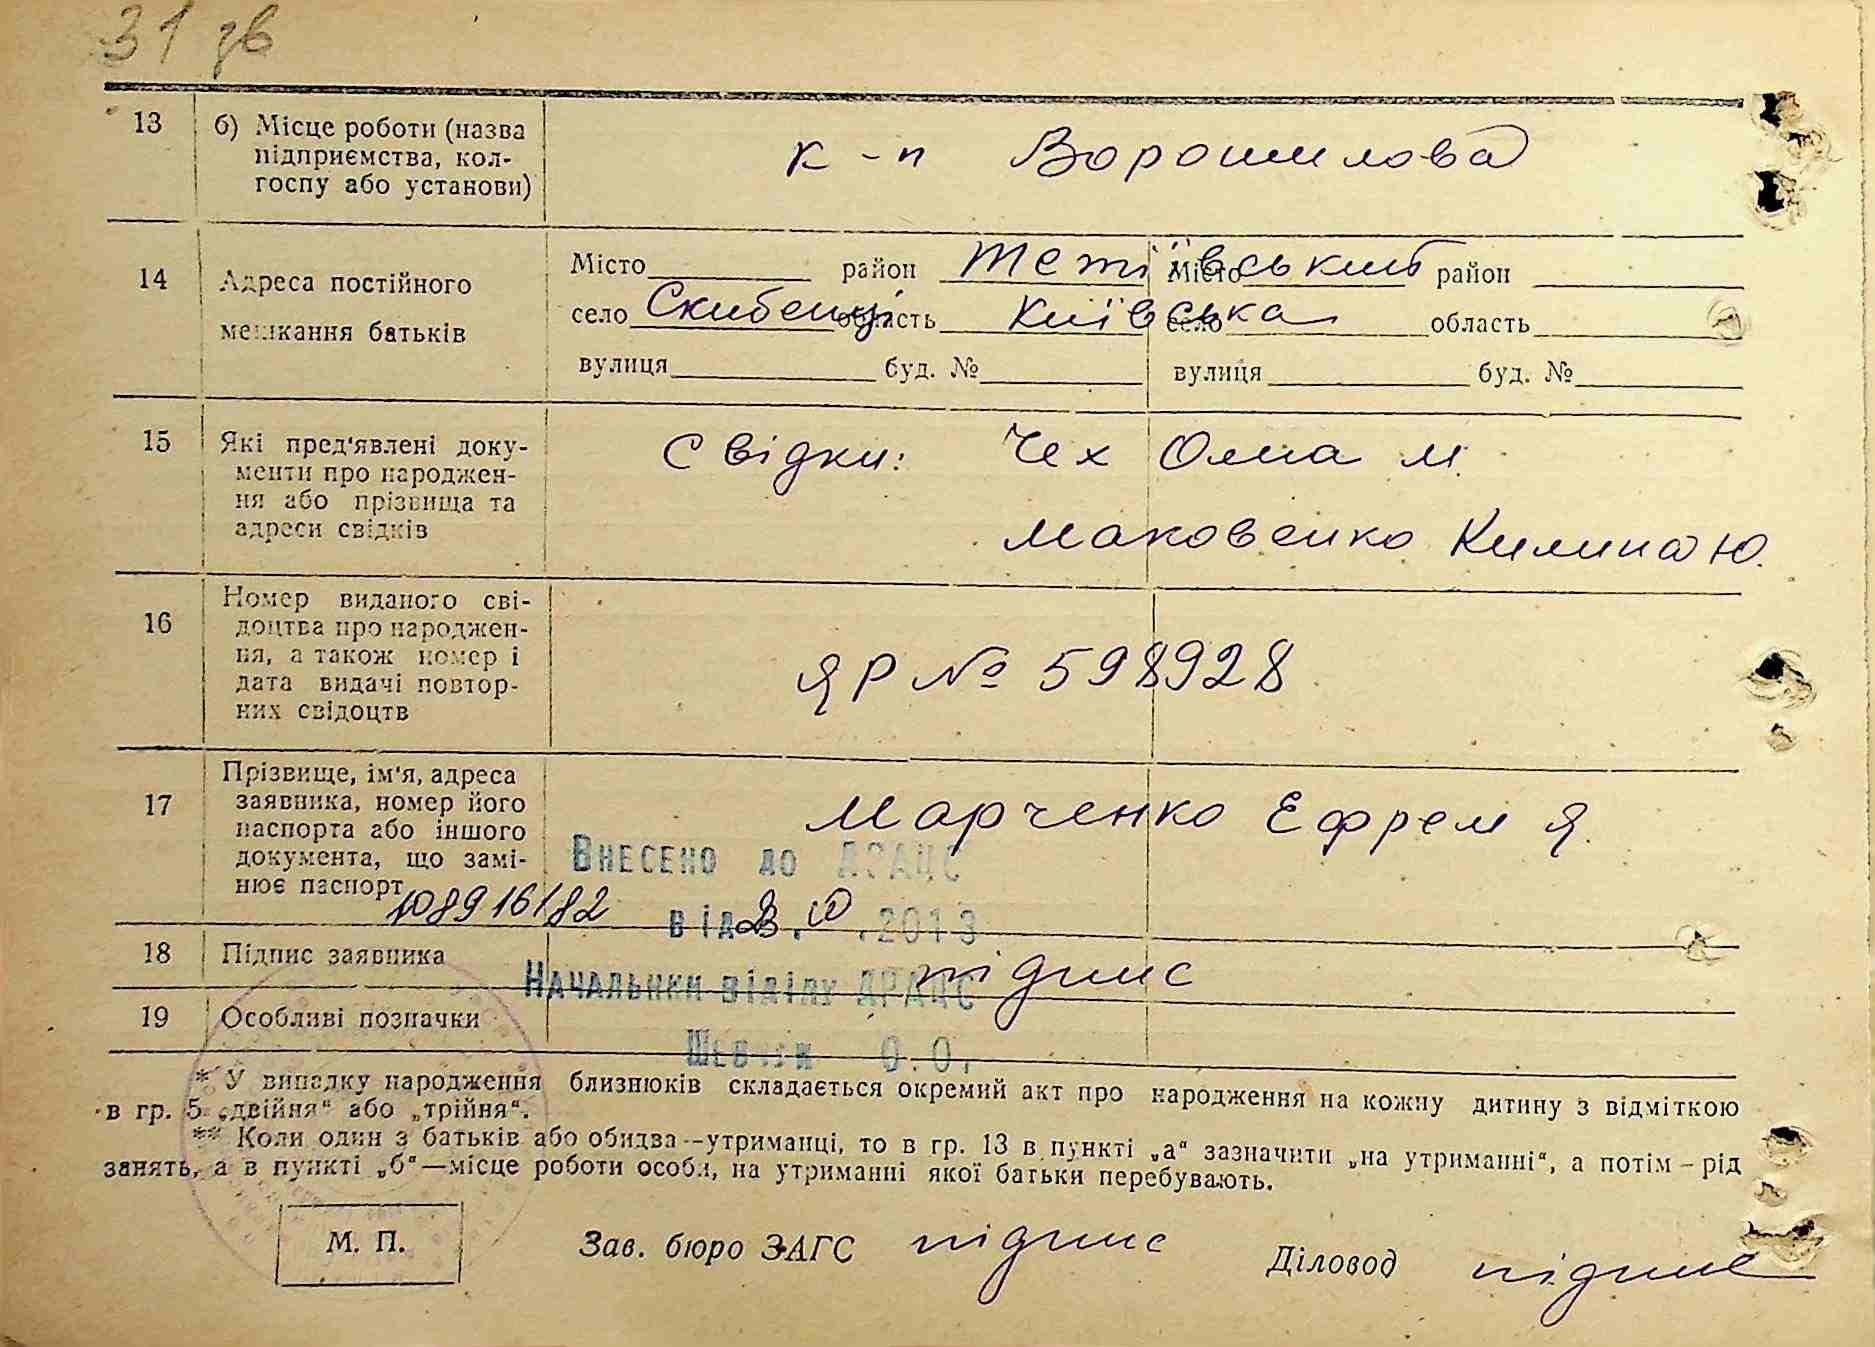 31 зв
13 б) Місце роботи (назва
підприємства, кол-
госпу або установи)
к-п Ворошилова
14 Адреса постійного
мешкання батьків
Місто район Тетіївський Місто район
село Скибенці область Київська село область
вулиця буд. № вулиця буд. №
15 Які пред'явлені доку-
менти про народжен-
ня або прізвища та
адреси свідків
Свідки: Чех Олна М.
Маковенко Килина Ю.
16 Номер виданого сві-
доцтва про народжен-
ня, а також номер і
дата видачі повтор-
них свідоцтв
ЯР № 598928
17 Прізвище, ім'я, адреса
заявника, номер його
паспорта або іншого
документа, що замі-
нює паспорт
Марченко Ефрем Я.
Внесено до ДРАЦС
108916182
від .2013
18 Підпис заявника
підпис
Начальник відділу ДРАЦС
19 Особливі позначки
О.О.
* У випадку народження близнюків складається окремий акт про народження на кожну дитину з відміткою
в гр. 5 „двійня“ або „трійня“.
** Коли один з батьків або обидва—утриманці, то в гр. 13 в пункті „а“ зазначити „на утриманні“, а потім – рід
занять, а в пункті „б“—місце роботи особи, на утриманні якої батьки перебувають.
М. П.
Зав. бюро ЗАГС підпис Діловод підпис